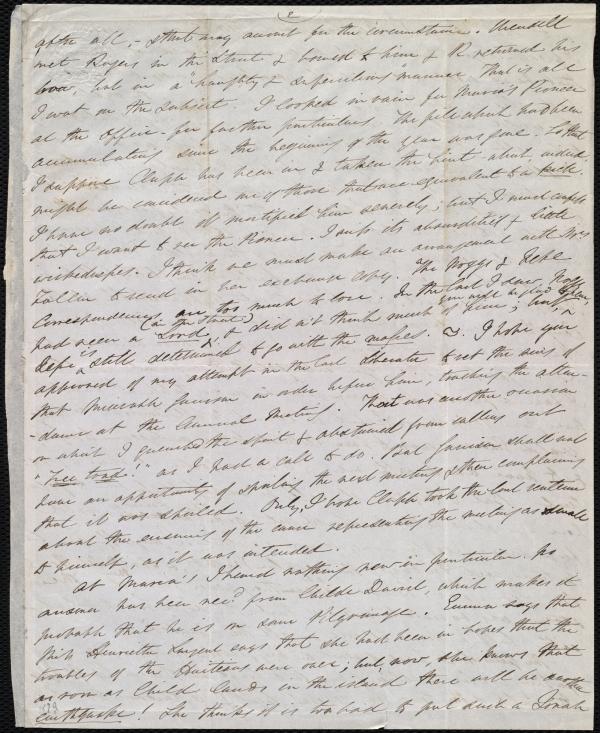 2
after all, - & that may account for the circumstance. Wendell
met Rogers in the Street & bowed to him & R. returned his
bow, but in a "haughty & supercilious" manner. That is all
I wot on the subject. I looked in vain for Maria's Pioneer
at the Office - for further particulars. The pile which had been
accumulating since the beginning of the year was gone. So that
I suppose Clapp has been in & taken the hint - which indeed
might be considered one of those that are equivalent to a kick.
I have no doubt it mortified him severely; but I must confess
that I want to see the Pioneer. I miss its absurdities & little
wickednesses. I think we must make an arrangement with Mrs
Follen to send in her exchange copy. The Boggs & Depe
Correspondencies are too much to lose. In the last I saw, Boggs
had seen a Lord (in the street), & didn't think much of him;
Depe is still determined to go with the masses. I hope you
approved of my attempt in the last Liberator to set the sins of
that miserable Garrison in order before him, touching the atten-
-dance at the Annual Meeting. That was another occasion
on which I quenched the spirit & abstained from calling out
"Tree toad!" as I had a call to do. But Garrison shall not
have an opportunity of spoiling the next meeting & then complaining
that it was spoiled. Only, I hope Clapp took the last centum
about the enemies of the cause representing the meeting as small
to himself, as it was intended.
At Maria's I heard nothing new in particular. No
answer has been recd from Childe David, which makes it
probable that he is on some Pilgrimage. Emma says that
Miss Henrietta Sargent says that she had been in hopes that the
troubles of the Haitiens were over; but, now, she knows that
as soon as Child lands in the island there will be another
Earthquake! She thinks it is too bad to put such a Jonah